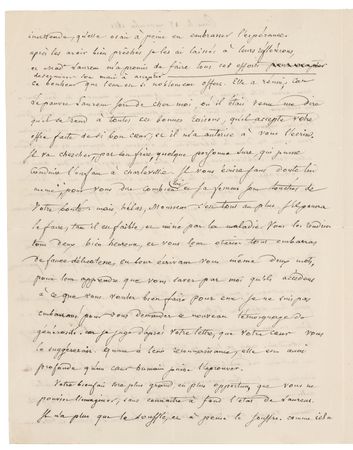 inattendu, qu'elle osait à peine en embrasser l'espérance.
après les avoir bien prêchés je les ai laissés à leurs réflexions
et Mad. Laurent m'a promis de faire tous ses efforts
décider son mari à accepter
ce bonheur que l'on se si noblement offert. Elle a réussi, car
le pauvre Laurent sort de chez moi où il était venu me dire
qu'il se rend à toutes ces bonnes raisons, qu'il accepte votre
offre faite de si bon cœur, et il m'a autorisé à vous l'écrire.
Il va chercher, par ton frère, quelque personne sure qui puisse
conduire l'enfant à Charleville. Il vous écrira sans doute lui
même, pour vous dire combien lui et sa femme sont touchés de
votre bonté. mais hélas, Monsieur c'est tout au plus s'il pourra
le faire, tant il est faible, et miné par la maladie. Vous les rendriez
tous deux bien heureux, et vous leur ôteriez tous embarras
de fausse délicatesse, en leur écrivant vous même deux mots,
pour leur apprendre que vous savez par moi qu'ils accèdent
à ce que vous voulez bien faire pour eux. je ne suis pas
embarrassé pour vous demander ce nouveau témoignage de
générosité. car je juge d'après votre lettre, que votre cœur vous
le suggérerait. quant à leur reconnaissance, elle est aussi
profonde qu'un cœur humain puisse l'éprouver.
Votre bienfait sera plus grand et plus opportun que vous ne
pouviez l'imaginer, sans connaître à fond l'état de Laurent.
Il n'a plus que le souffle, et à peine le souffle. comme il n'a